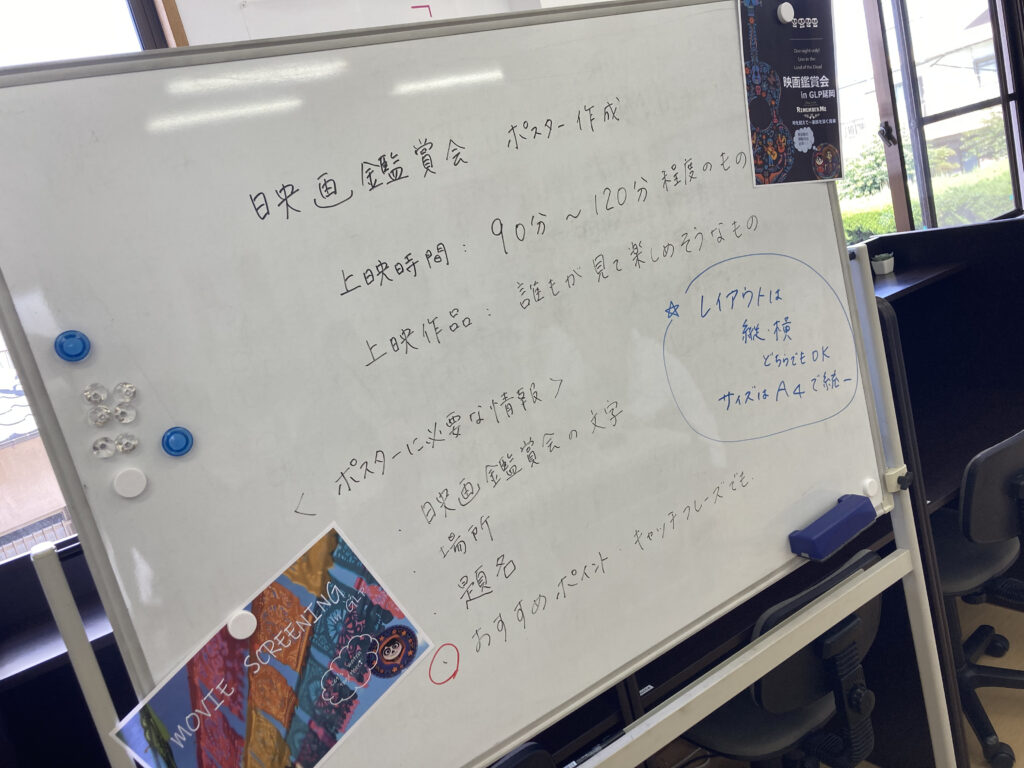 映画鑑賞会 ポスター作成
上映時間: 90分～120分 程度のもの
上映作品: 誰もが見て楽しめそうなもの
☆ レイアウトは
縦・横
どちらでもOK
サイズは A4で統一
<ポスターに必要な情報>
・映画鑑賞会の文字
・場所
・題名
・おすすめポイント・キャッチフレーズでも.
One night only!
Live in the
Land of the Dead
映画鑑賞会
in GLP延岡
REMEMBER ME
MOVIE SCREENING
GLP